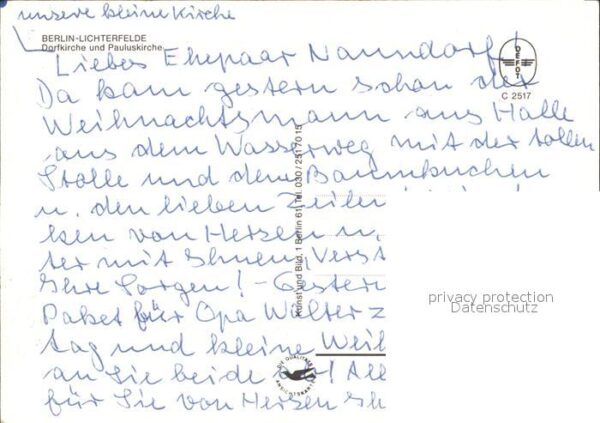 unsere kleine Kirche
BERLIN-LICHTERFELDE
Dorfkirche und Pauluskirche
DEFOT
C 2517
Liebes Ehepaar Nanndorf!
Da kam gestern schon der
Weihnachtsmann aus Halle
aus dem Wasserweg mit der tollen
Stolle und dem Baumkuchen
u. den lieben Zeilen
ken von Herzen u.
ter mit Ihnen, Verst
Ihre Sorgen! - Gestern
Paket für Opa Walter z
tag und kleine Weih
an Sie beide ! All
für Sie von Herzen Ih
Kunst und Bild, 1 Berlin 61, Tel. 030/251 70 15
DIE QUALITÄTS
ANSICHTSKARTE
privacy protection
Datenschutz